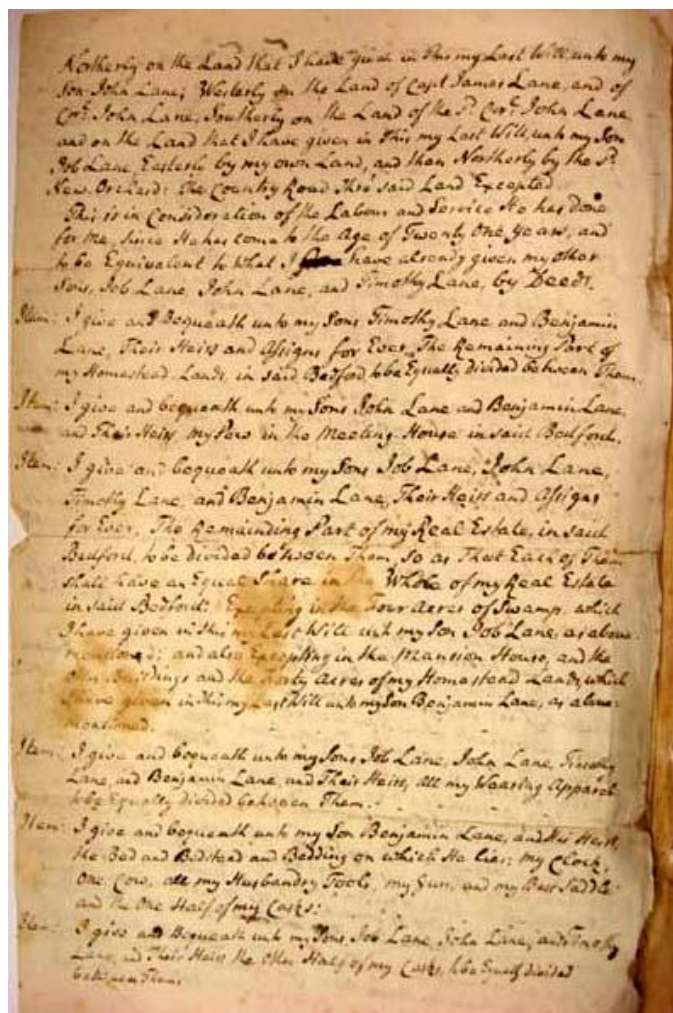 Northerly on the Land that I have given in this my Last Will, unto my
Son John Lane; Westerly on the Land of Capt James Lane, and of
Corl. John Lane; Southerly on the Land of the sd. Corl. John Lane
and on the Land that I have given in This my Last Will, unto my Son
Job Lane, Easterly by my own Land, and then Northerly by the sd.
New Orchard: the Country Road Thro' said Land Excepted.
This is in Consideration of the Labour and Service He has done
for me, since He has come to the Age of Twenty One years, and
to be Equivalent to what I have already given my other
Sons, Job Lane, John Lane, and Timothy Lane, by Deeds.
Item: I give and Bequeath unto my Sons Timothy Lane and Benjamin
Lane, Their Heirs and Assigns for Ever, The Remaining Part of
my Homestead Lands, in said Bedford to be Equally divided between Them.
Item: I give and bequeath unto my Sons John Lane and Benjamin Lane,
and Their Heirs, my Pew in the Meeting-House in said Bedford.
Item: I give and bequeath unto my Sons Job Lane, John Lane,
Timothy Lane, and Benjamin Lane, Their Heirs and Assigns
for Ever, The Remainding Part of my Real Estate, in said
Bedford, to be divided between Them, so as That Each of Them
shall have an Equal Share in the Whole of my Real Estate
in said Bedford: Excepting in the Four Acres of Swamp, which
I have given in this my Last Will unto my Son Job Lane, as above
mentioned: and also Excepting in the Mansion House, and the
other Buildings and the Forty Acres of my Homestead Lands, which
I have given in This my Last Will unto my Son Benjamin Lane, as above-
mentioned.
Item: I give and bequeath unto my Sons Job Lane, John Lane, Timothy
Lane, and Benjamin Lane, and Their Heirs, all my Wearing Apparel
to be Equally divided between Them.
Item: I give and bequeath unto my Son Benjamin Lane, and His Heirs,
the Bed and Bedstead and Bedding on which He lies; my Clock,
One Cow, all my Husbandry Tools, my Gun, and my Best Saddle
and the One Half of my Casks:
Item: I give and Bequeath unto my Sons, Job Lane, John Lane, and Timothy
Lane, and Their Heirs the Other Half of my Casks, to be Equally divided
between Them.